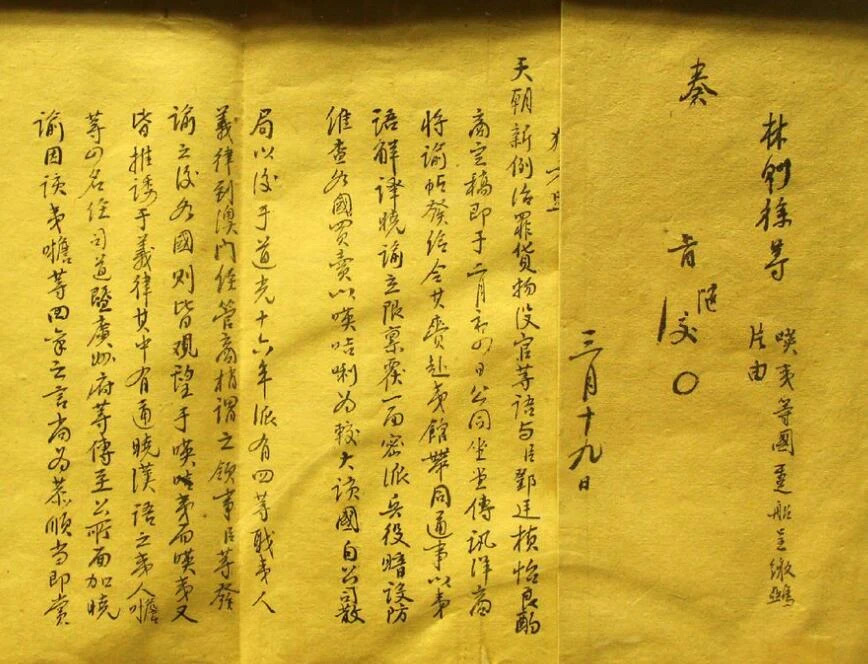 林則徐等
奏
𠸄夷等國躉船呈繳鴉
片由
三月十九日
天朝新例治罪貨物沒官等語與臣鄧廷楨怡良酌
商定稿即于二月初四日公同坐堂傳訊洋商
將諭帖發給令其賫赴夷館帶同通事以夷
語解譯曉諭立限稟覆一面密派兵役暗設防
維查各國買賣以𠸄咭唎為較大該國自公司散
局以後于道光十六年派有四等職夷人
義律到澳門經管商梢謂之領事臣等發
諭之後各國則皆觀望于𠸄咭夷而𠸄夷又
皆推諉于義律其中有通曉漢語之夷人噡
等四名經司道暨廣州府等傳至公所面加曉
諭因該夷噡等回稟之言尚為恭順當即賞